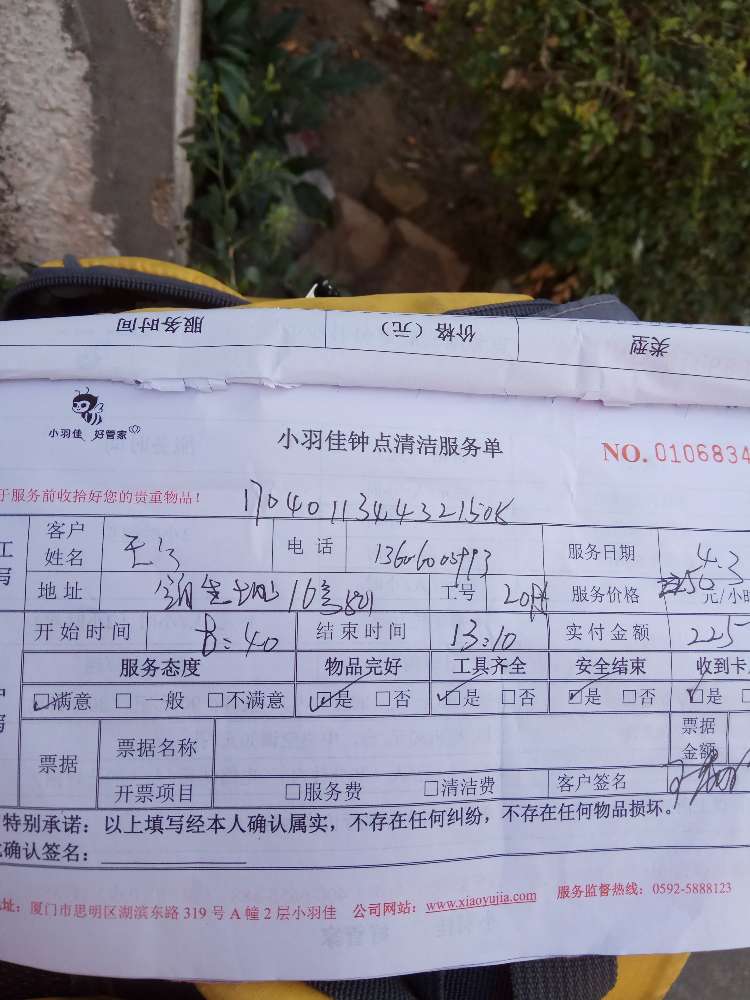 服务时间 价格（元） 类型
小羽佳 好管家
小羽佳钟点清洁服务单
NO. 0106834
于服务前收拾好您的贵重物品！
客户姓名 电话 服务日期 4.3
地址 工号 服务价格 元/小时
开始时间 8:40 结束时间 13:10 实付金额 225
服务态度 物品完好 工具齐全 安全结束 收到卡
☑满意 □一般 □不满意 ☑是 □否 ☑是 □否 ☑是 □否 ☑是
票据 票据名称 票据金额
开票项目 □服务费 □清洁费 客户签名
特别承诺：以上填写经本人确认属实，不存在任何纠纷，不存在任何物品损坏。
确认签名：
址：厦门市思明区湖滨东路 319 号 A 幢 2 层小羽佳 公司网站：www.xiaoyujia.com 服务监督热线：0592-5888123